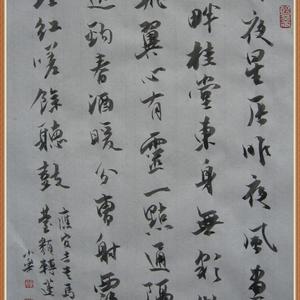 夜星辰昨夜風畫
畔桂堂東身無彩
飛翼心有靈一點通隔
送鉤春酒暖分曹射覆
燈紅嗟餘聽鼓
應官去走馬
臺類轉蓬